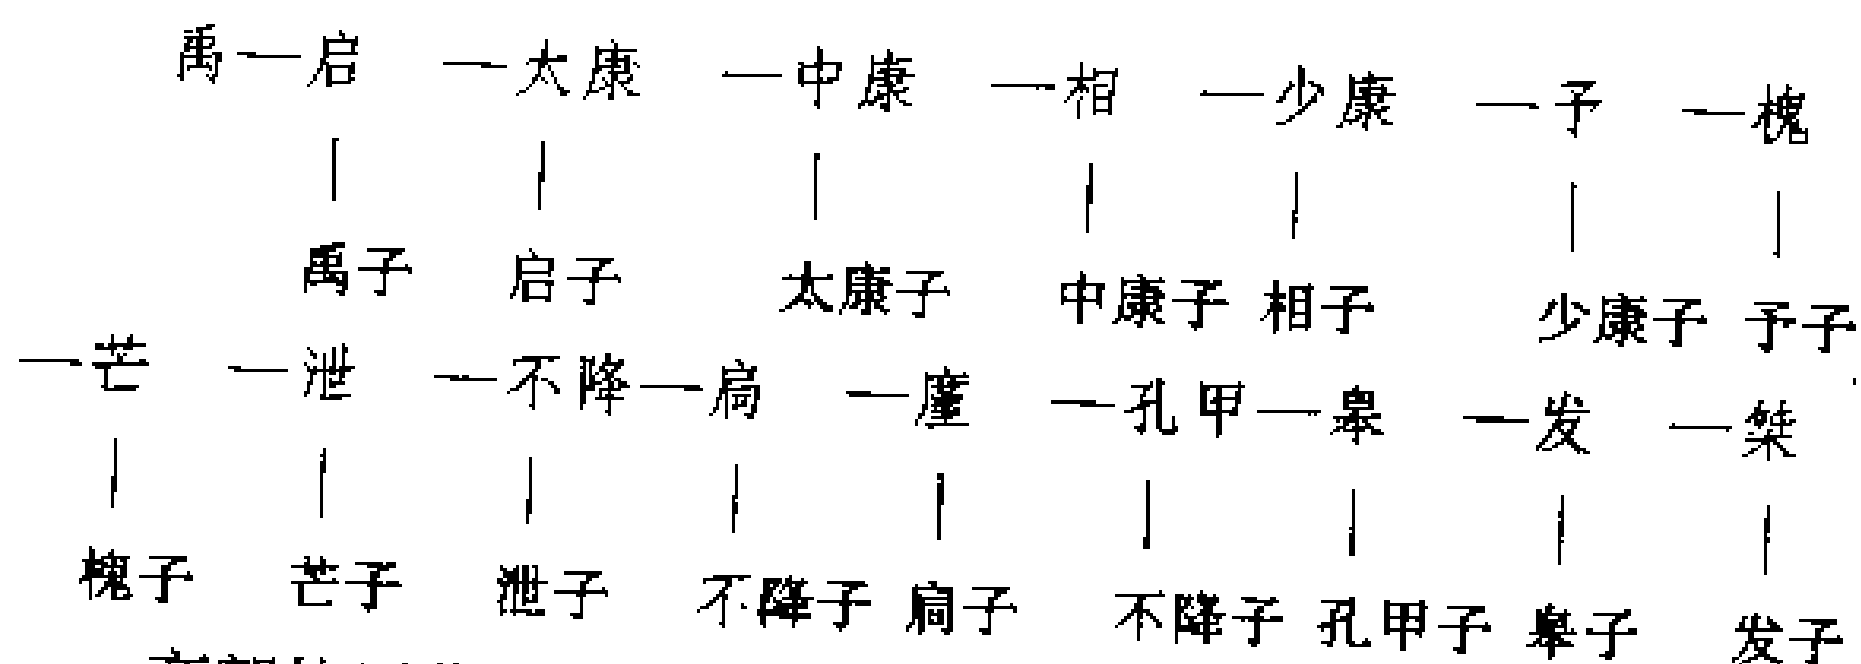 禹—启 —太康 —中康 —相 —少康 —予 —槐
禹子 启子 太康子 中康子 相子 少康子 予子
—芒 —泄 —不降—扃 —廑 —孔甲—皋 —发 —桀
槐子 芒子 泄子 不降子 扃子 不降子 孔甲子 皋子 发子